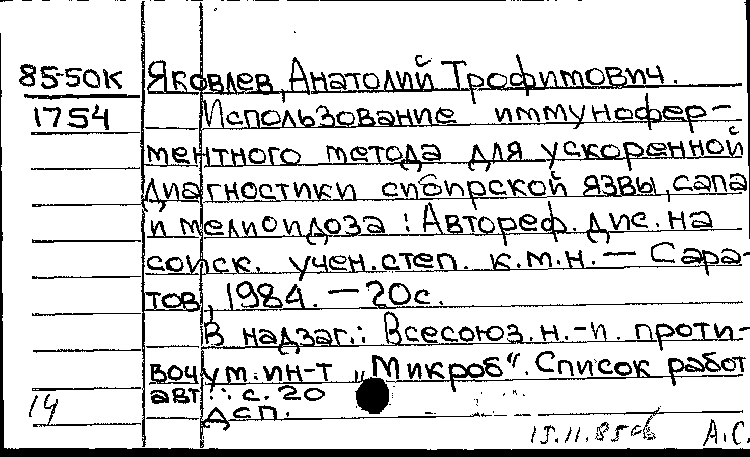 85-50К Яковлев, Анатолий Трофимович.
1754 Использование иммунофер-
ментного метода для ускоренной
диагностики сибирской язвы, сапа
и мелиоидоза : Автореф. дис. на
соиск. учен. степ. к.м.н. — Сара-
тов, 1984. — 20с.
В надзаг.: Всесоюз. н.-и. проти-
вочум. ин-т „Микроб“. Список работ
авт.: с. 20
14 ДСП.
15.11.85 А.С.